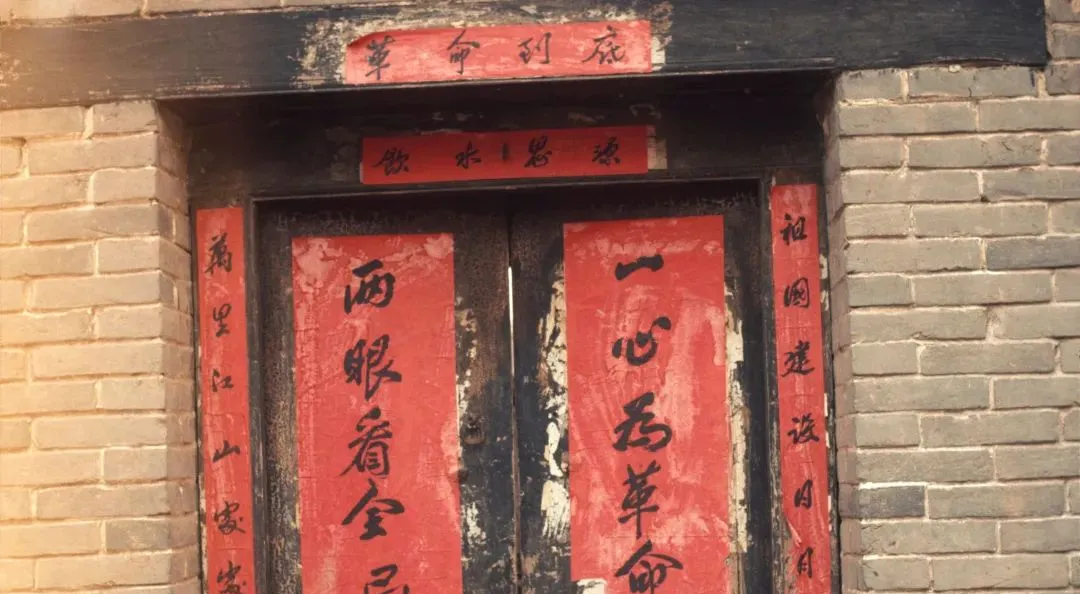 革命到底
飲水思源
祖國建設日日
一心為革命
两眼看全
萬里江山處處